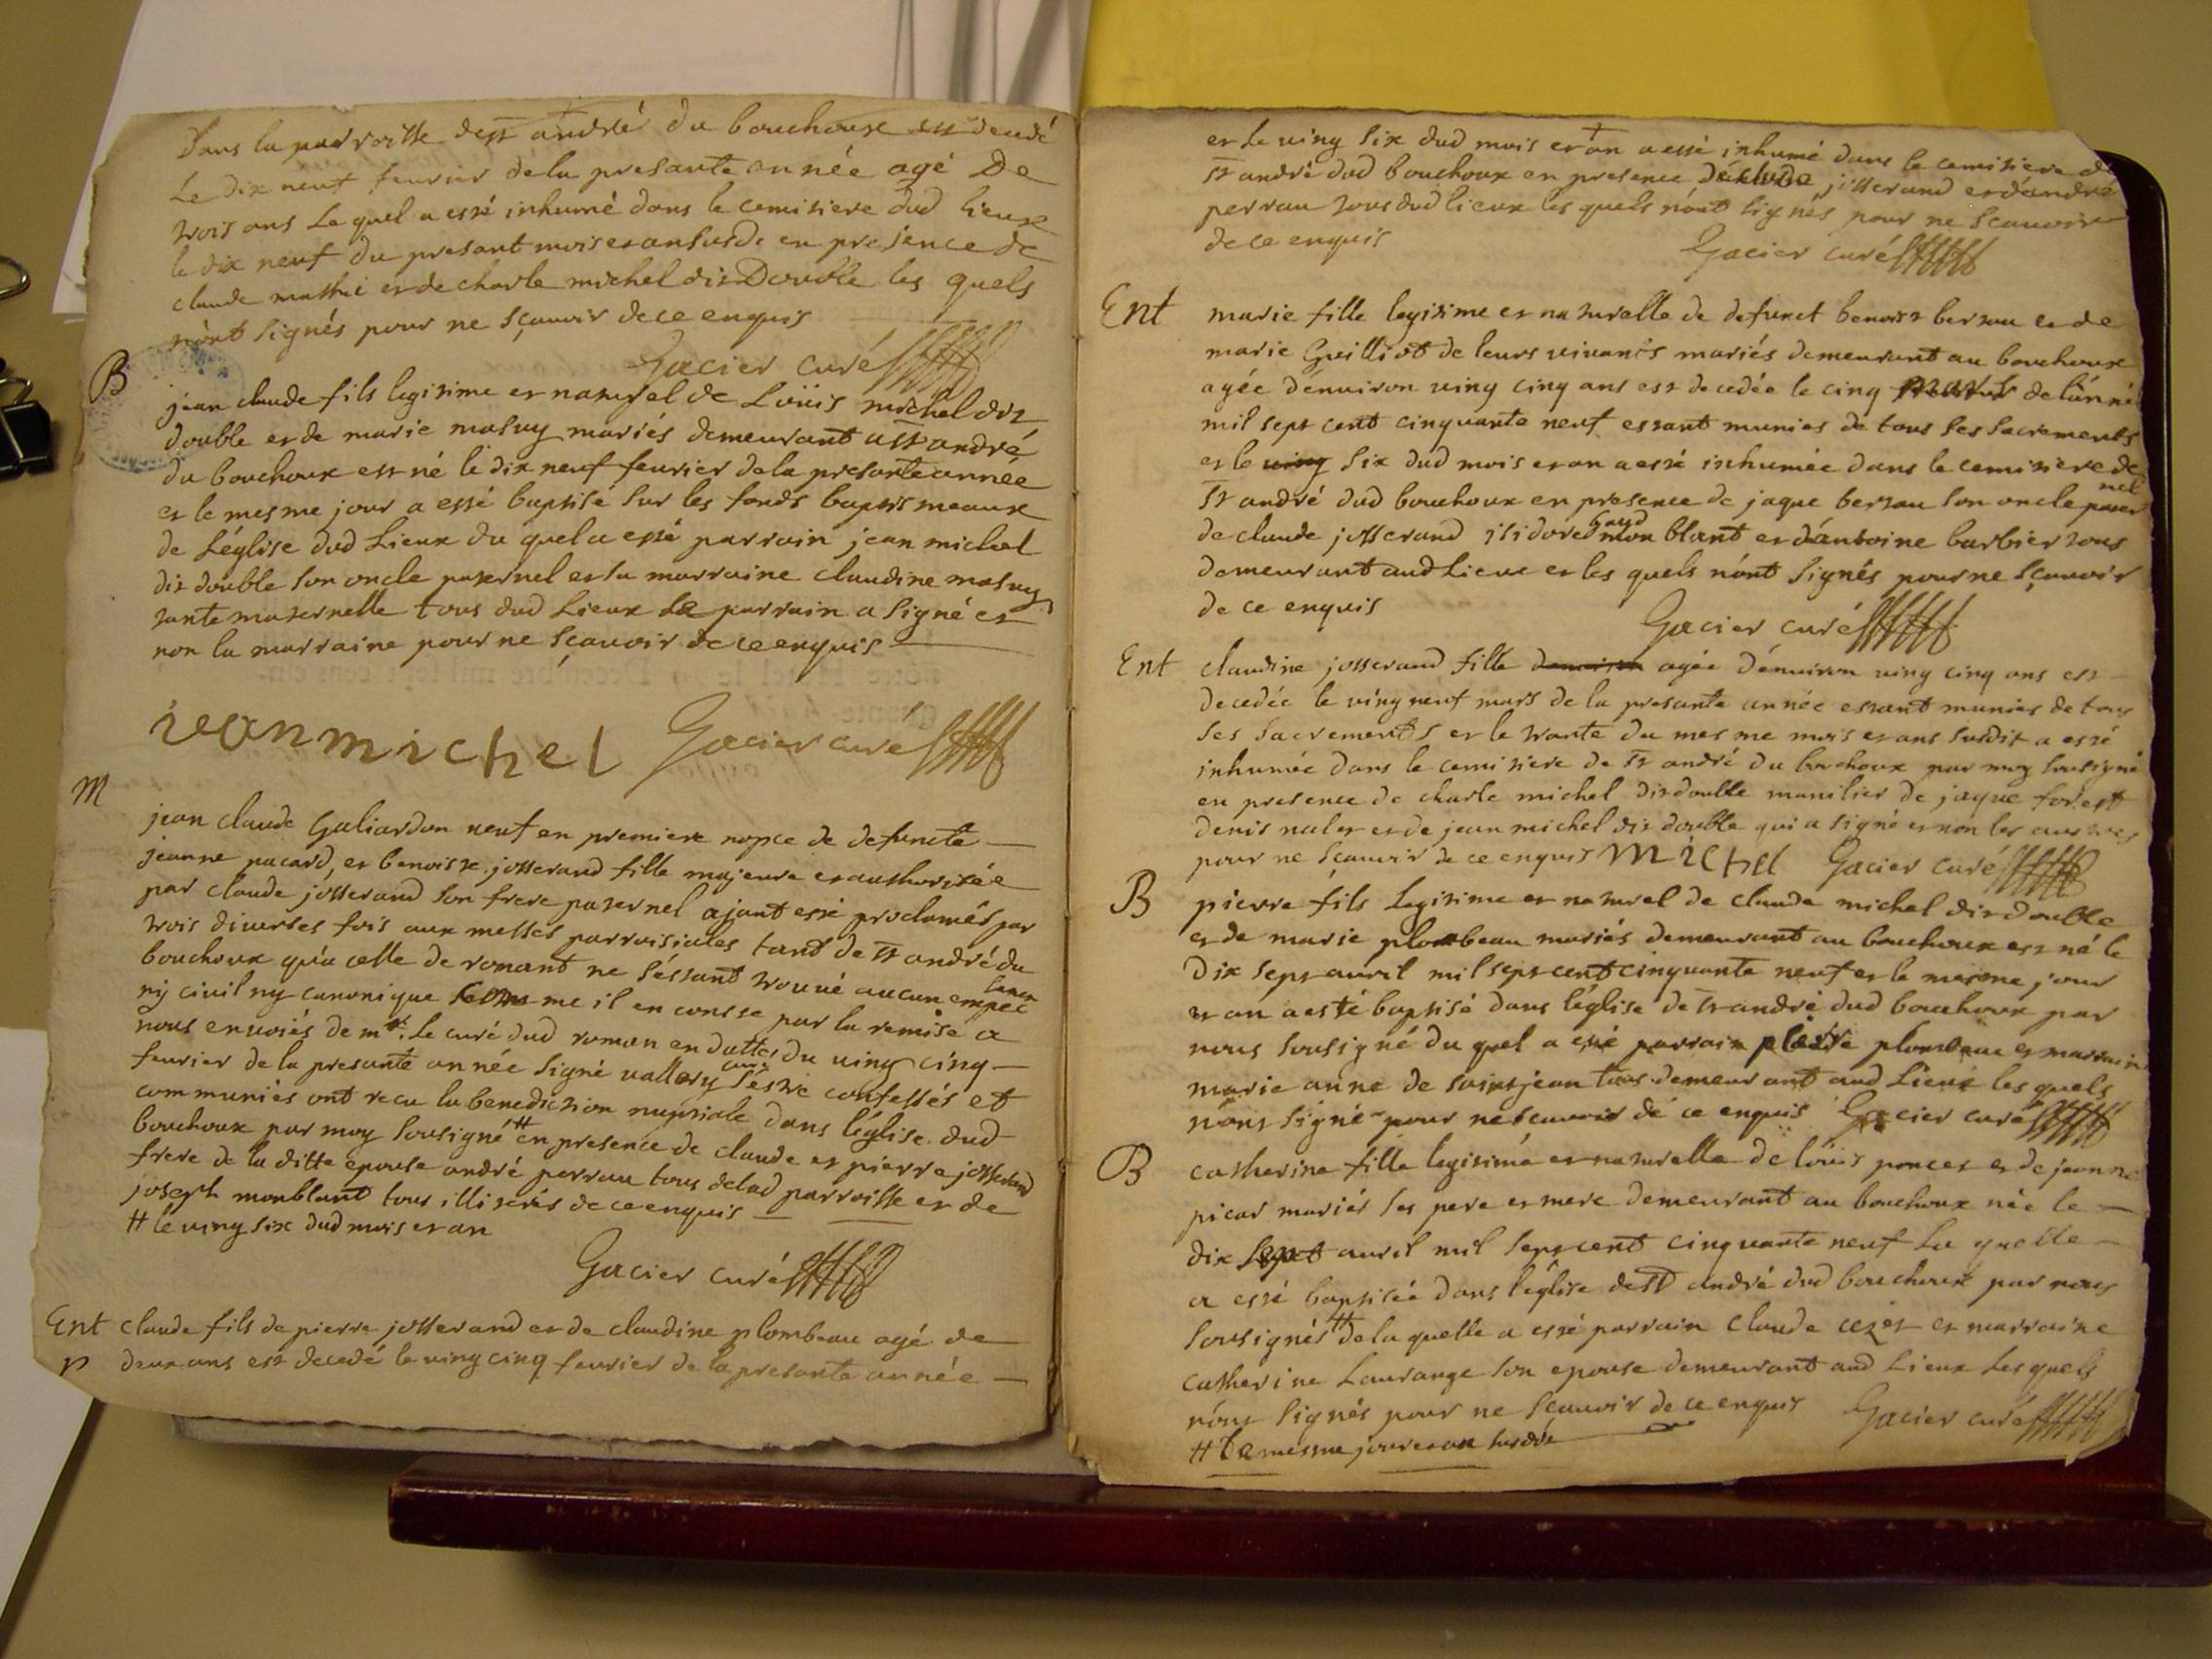 Dans la parroisse de st andré du bouchoux est decedé
Le dix neuf feurier de la presante année agé De
trois ans Lequel a esté inhumé dans le cemitiere dud Lieux
le dix neuf du presant mois et an susdt en presence de
claude mathii et de charle michel dit Double les quels
n'ont signés pour ne sçauoir de ce enquis
Gacier curé
B
jean claude fils legitime et naturel de Loüis michel dit
double et de marie matuy mariés demeurant a st andré
du bouchoux est né le dix neuf feurier de la presante année
et le mesme jour a essé baptisé sur les fonds baptismeaux
de L'église dud Lieux du quel a essé parrain jean michel
dit double son oncle paternel et sa marraine claudine matuy
tante maternelle tous dud Lieux Le parrain a signé et
non la marraine pour ne sçauoir de ce enquis
ieanmichel Gacier curé
M
jean claude Galiardon neuf en premiere nopce de defuncte
jeanne pacard, et benoiste josserand fille majeure et authorisée
par claude josserand son frere paternel ajant essé proclamés par
trois diuerses fois aux messes parroisiales tant de st andré du
bouchoux qu'a celle de romant ne s'éssant trouué aucun empec
hement
nij ciuil ny canonique comme il en consse par la remise a
nous enuoiés de mr. Le curé dud roman en datte du uing cinq
feurier de la presante année signé vallory curé s'éstre confessés et
communiés ont recu la benediction nuptiale dans l'église dud
bouchoux par moy sousigné # en presence de claude et pierre josserand
frere de la ditte epouse andré perrau tous delad parroisse et de
joseph monblant tous illiterés de ce enquis
# le uing six dud mois et an
Gacier curé
Ent claude fils de pierre josserand et de claudine plombeau agé de
p deux ans est decedé le uing cinq feurier de la presante année
et Le uing six dud mois et an a essé inhumé dans le cemitiere de
st andré dud bouchoux en presence de claude josserand et d'andré
perrau tous dud lieux les quels n'ont signés pour ne sçauoir
de ce enquis
Gacier curé
Ent marie fille legitime et naturelle de defunct benoist bertau et de
marie Guilliot de leurs uiuants mariés demeurant au bouchoux
agée d'enuiron uing cinq ans est decedée le cinq de l'anné
mil sept cent cinquante neuf essant munies de tous ses sacrements
et le uing six dud mois et an a essé inhumée dans le cemitiere de
st andré dud bouchoux en presence de jaque bertau son oncle pater
nel
de claude josserand isidore monblant et d'antoine barbier tous
demeurant aud Lieux et les quels n'ont signés pour ne sçauoir
de ce enquis
Gacier curé
Ent claudine josserand fille agée d'enuiron uing cinq ans est
decedée le uing neuf mars de la presante année essant munies de tous
ses sacrements et le trante du mesme mois et ans susdit a essé
inhumée dans le cemitiere de st andré du bouchoux par moy sousigné
en presence de charle michel dit double manilier de jaque forest
denis nalet et de jean michel dit double qui a signé et non les autres
pour ne sçauoir de ce enquis Michel Gacier curé
B pierre fils Legitime et naturel de claude michel dit double
et de marie plombeau mariés demeurant au bouchoux est né le
Dix sept auril mil sept cent cinquante neuf et le mesme jour
et an a esté baptisé dans l'église de st andré dud bouchoux par
nous soussigné du quel a essé parrain pierre plombeau et marraine
marie anne de saint jean tous demeurant aud Lieux les quels
n'ont signé pour ne scauoir de ce enquis Gacier curé
B catherine fille legitime et naturelle de loüis poncet et de jeanne
picar mariés ses pere et mere demeurant au bouchoux née le
dix sept auril mil sept cent cinquante neuf La quelle
a essé baptisée dans l'église de st andré dud bouchoux par nous
sousignés # de la quelle a essé parrain claude cezet et marraine
catherine Laurange son epouse demeurant aud Lieux Les quels
n'ont signés pour ne sçauoir de ce enquis Gacier curé
# Le mesme jour et an susdit